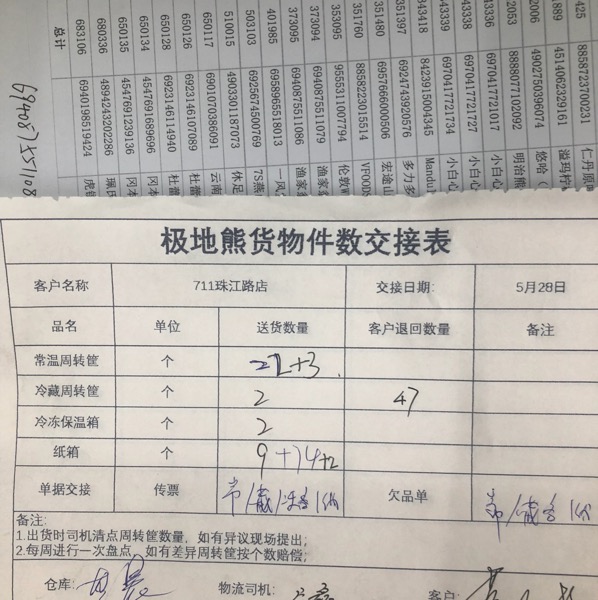 总计
683106 6940198519424 虎
680336 4894243202286 瑞
650135 4547691239136 冈本
650134 4547691689696 冈本
650128 6923146114940 杜蕾
650126 6923146107089 杜蕾
650117 6901070386091 云南
510015 4903301187073 休足
503103 6925674500769 7S燕
401985 6958965518013 一风
373095 6940875511086 渔家
373094 6940875511079 渔家
353095 9555311007794 伦敦
351760 8858223015514 VFOODS
351480 6957666000506 宏途山
351397 6924743920576 多力多
343418 8423915004345 Mandu
43339 6970417721734 小白心
43338 6970417721727 小白心
43336 6970417721017 小白心
2053 8888077102092 明治熊
2006 4902750396074 悠哈
889 4514062329161 溢玛柠
425 8858723700231 仁丹原
极地熊货物件数交接表
客户名称 711珠江路店 交接日期: 5月28日
品名 单位 送货数量 客户退回数量 备注
常温周转筐 个 22+3
冷藏周转筐 个 2 47
冷冻保温箱 个 2
纸箱 个 9+74+2
单据交接 传票 欠品单
备注:
1.出货时司机清点周转筐数量，如有异议现场提出;
2.每周进行一次盘点，如有差异周转筐按个数赔偿;
仓库: 物流司机: 客户: